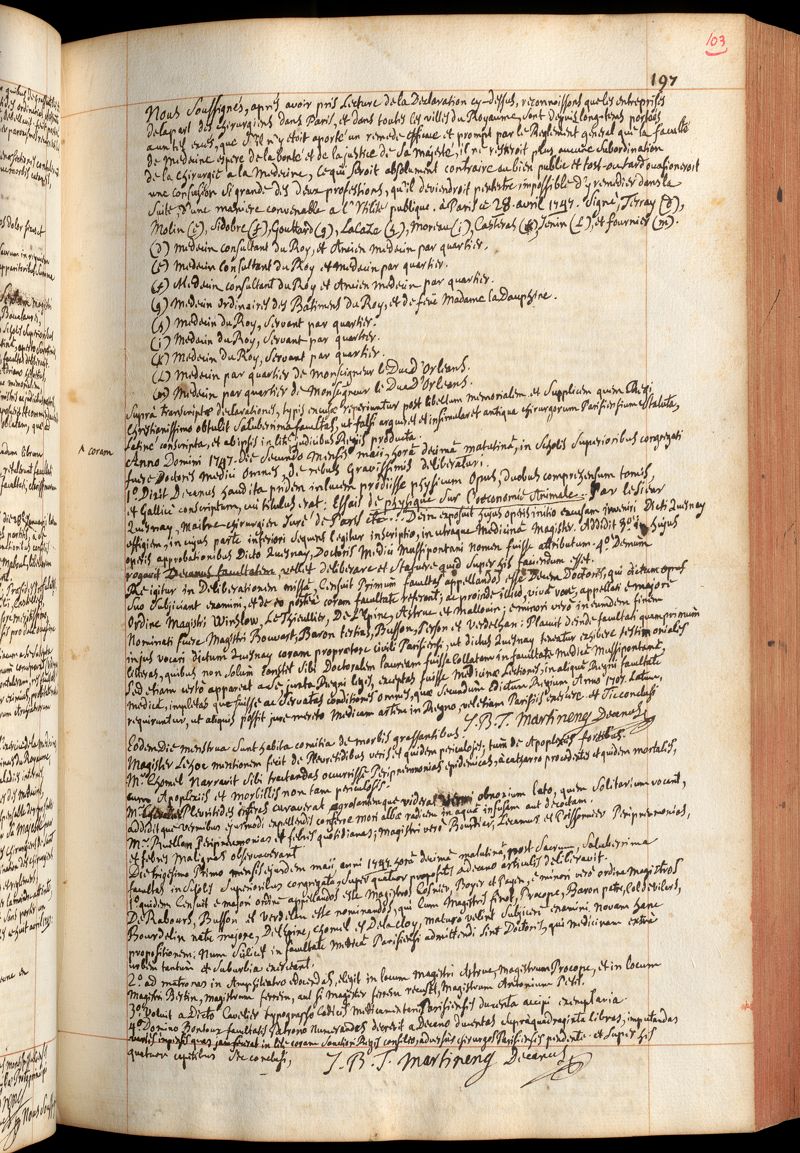 103
197
Nous Soussignés, après avoir pris Lecture de la Declaration cy-dessus, reconnoissons que les entreprises
de la part des chirurgiens dans Paris, et dans toutes les villes du Royaume, sont depuis long-tems portées
a un tel excés, que s'il n'y étoit aporté un remede efficace et prompt par le Reglement general que la faculté
de medecine espere de la bonté et de la justice de Sa majesté, il ne resteroit plus aucune Subordination
de la chirurgie a la Medecine, ce qui seroit absolument contraire au bien public et tost-ou-tard
une confusion Si grande des deux professions, qu'il deviendroit peutetre impossible d'y remedier dans la
Suite d'une maniere convenable a l'Utilité publique. à Paris ce 28. avril 1747. Signé, Terray (d),
Molin (e), Sidobre (f), Gouttard (g), LaCaze (h), Moreau (i), Casteras (k), Jenin (L), et fournier (m).
(d) medecin consultant du Roy, et Ancien medecin par quartier.
(e) medecin consultant du Roy et medecin par quartier.
(f) Medecin consultant du Roy et Ancien medecin par quartier.
(g) medecin ordinaire des Bâtimens du Roy, et de feüe Madame la Dauphine.
(h) medecin du Roy, Servant par quartier.
(i) medecin du Roy, Servant par quartier.
(k) medecin du Roy, Servant par quartier.
(L) medecin par quartier de monseigneur le Duc d'Orleans.
(m) medecin par quartier de Monseigneur le Duc d'Orleans.
Supra transcriptæ declarationes, typis excusæ reperiuntur post libellum memorialem et Supplicem quem Regi
christianissimo obtulit Saluberrima facultas, ut falsi arguret et insimularet antiqua chirurgorum Parisiensium Statuta,
^ coram
Latine conscripta, et ab ipsis in lite ^ judicibus Regiis producta.
Anno Domini 1747. Die Secundo mensis maii, horâ decimâ matutinâ, in Scholis Superioribus congregati
fuere Doctores Medici omnes, de rebus Gravissimis deliberaturi.
1°. Dixit Decanus haud ita pridem in lucem prodiisse physicum opus, duobus comprehensum tomis,
et Gallice conscriptum, cui titulus erat: Essai de physique Sur l'oeconomie Animale. Par le Sieur
Quesnay, Maitre-chirurgien Juré de Paris etc. 2°. Dein exposuit hujus operis initio excusam inveniri Dicti Quesnay
effigiem, in cujus parte inferiori sequens legitur inscriptio, in utraque Medicinâ Magister. Addidit 3°. in hujus
operis approbationibus Dicto Quesnay, Doctoris Medici Mussipontani nomen fuisse attributum. 4°. Demum
rogavit Decanus facultatem, vellet deliberare et Statuere quid Super his faciendum esset.
Re igitur in Deliberationem missâ, Censuit Primum facultas appellandos esse Decem Doctores, qui dictum opus
Suo Subjiciant examini, et de eo postea coram facultate referant; ac proinde illico, vivâ voce, appellati e majore
ordine Magistri Winslow, Le Thieullier, De L'Epine, Astruc et Malloüin; e minori vero in eundem finem
Nominati fuere Magistri Bouvart, Baron tertius, Busson, Person et Verdelhan: Placuit deinde facultati quam primum
in jus vocari dictum Quesnay coram propraetore civili Parisiensi, ut dictus Quesnay teneatur exhibere testimoniales
literas, quibus non Solum constet Sibi Doctoralem lauream fuisse collatam in facultate Medicâ Mussipontanâ,
Sed etiam certo appareat a Se juxta Regni leges, exceptas fuisse Medicinæ Lectiones, in aliquâ Regni facultate
medicâ, impletas que fuisse ac Servatas conditiones omnes, quæ Secundum Edictum Regium Anno 1707. Latum,
requiruntur, ut aliquis possit jure merito Medicam artem in Regno, vel etiam Parisiis exercere. et Sic conclusi
J. B. T. Martinenq Decanus
Eodem die menstrua Sunt habita comitia de morbis grassantibus.
Magister Lehoc mentionem fecit de Pleuretidibus veris et quidem periculosis, tum de Apoplexiis fortibus.
Mr. Chomel Narravit Sibi tractandas occurrisse Peripneumonias epidemicas, à catharro procedentes et quidem mortales,
Apoplexiis et morbillis non tam periculosis.
Pleuritides curaverat ægrotantemque viderat vermi obnoxium lato, quem Solitarium vocant,
addidit que vermibus ejusmodi expellendis conferre mori albæ radicem in aquâ infusam aut decoctam.
Mr. Ruellan Peripneumonias et febres quotidianas; Magistri vero Bourdier, Lezurier et Poissonier Peripneumonias,
et febres Malignas observaverant
Die trigesimo Primo mensis ejusdem maii anni 1747. horâ decimâ matutinâ, post Sacrum, Saluberrima
facultas in Scholis Superioribus congregata, Super quatuor propositis a Decano articulis deliberavit.
1°. quidem Censuit e majori ordine appellandos esse Magistros Cosnier, Boyer et Payen, e minori vero ordine Magistros
De Rabours, Busson et Verdelhan esse nominandos, qui Cum Magistris finot, Procope, Baron patre, Col de Vilars,
Bourdelin natu majore, De L'Epine, Chomel et De la Cloy, maturo velint Subjicere examini, novam hanc
propositionem: Num Scilicet in facultate medicâ Parisiensi admittendi Sint Doctores, qui medicinam extrâ
urbem tantum et Suburbia exerceant.
2°. ad matronas in Amphiteatro edocendas, elegit in locum magistri Astruc, magistrum Procope, et in locum
Magistri Bertin, magistrum ferrein, aut si Magister ferrein recuset, Magistrum Antonium Petit.
3°. voluit a Dicto Cavelier typographo Codicis Medicamentarii Parisiensis ducenta accipi exemplaria.
4°. Domino Bontoux facultatis Patrono numerandos decrevit a Decano ducentas Supra quadraginta libras, imputandas
variis impensis quas jam fecerat in lite coram Sanctiori Regis consilio, adversus chirurgos Parisiensis pendente. et Super his
quatuor capitibus Sic conclusi, J. B. T. Martinenq Decanus